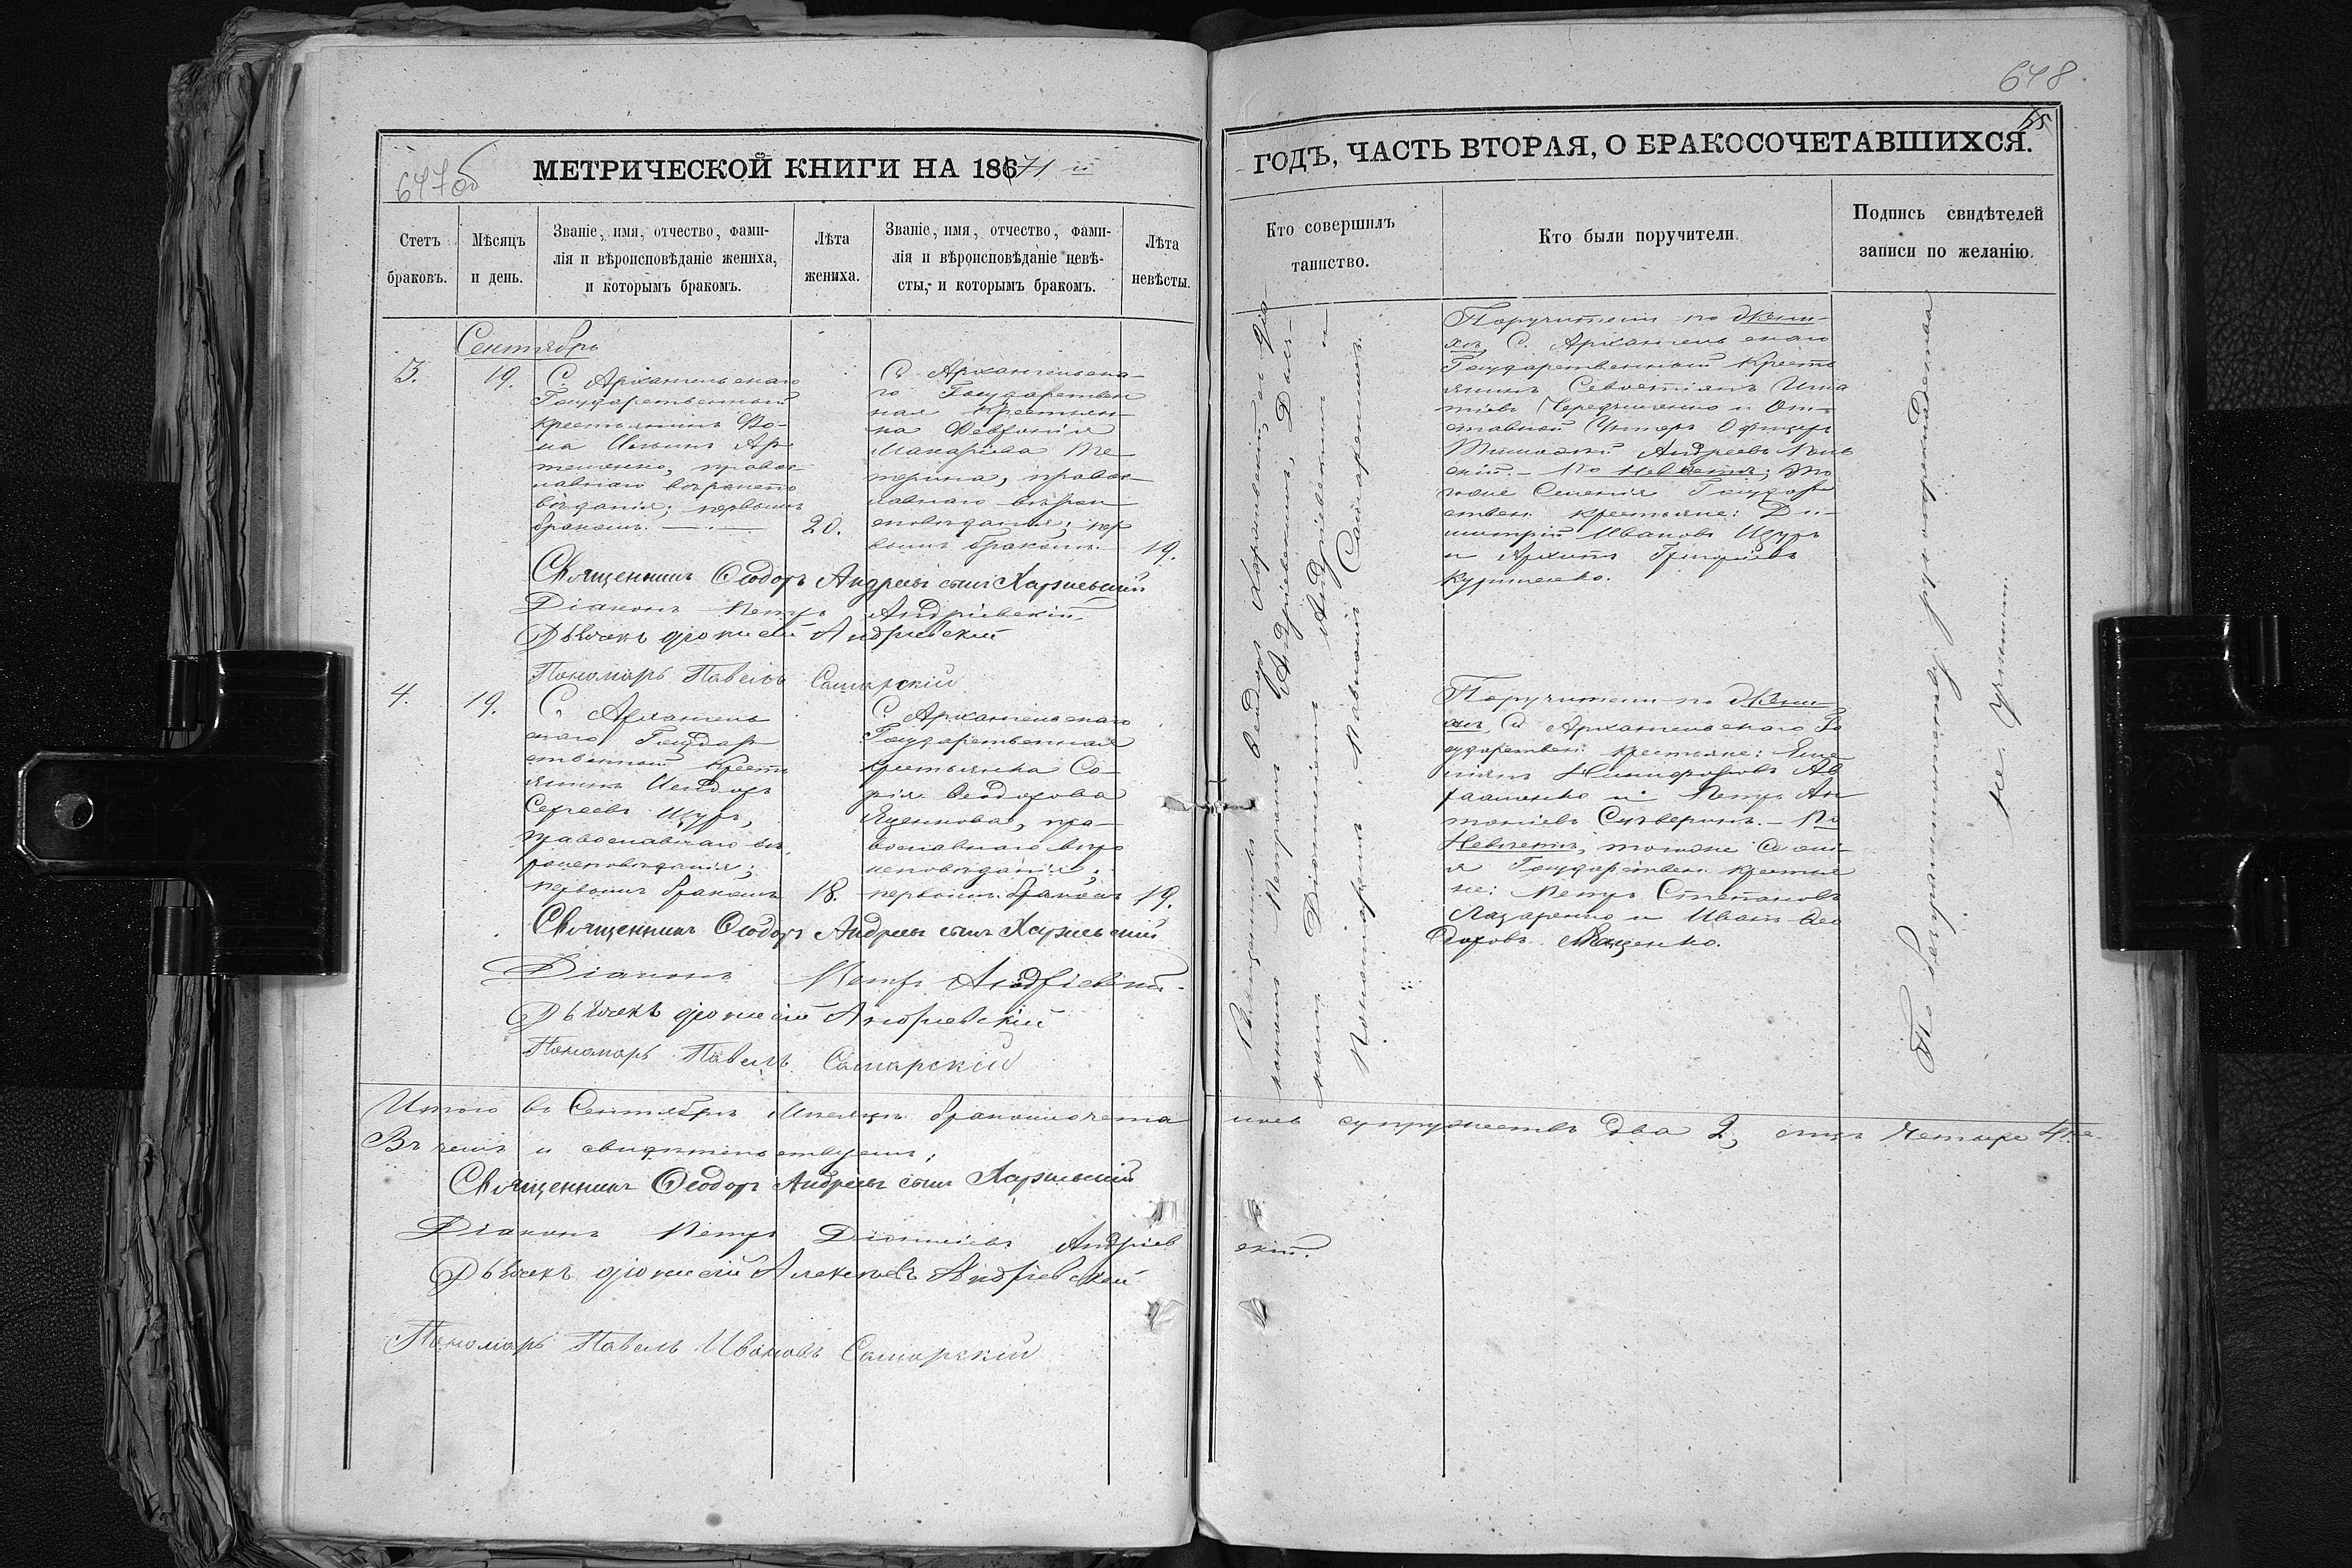 647об
МЕТРИЧЕСКОЙ КНИГИ НА 18671 й
Счетъ
браковъ.
Мѣсяцъ
и день.
Званіе, имя, отчество, фами-
лія и вѣроисповѣданіе жениха,
и которымъ бракомъ.
Лѣта
жениха.
Званіе, имя, отчество, фами-
лія и вѣроисповѣданіе невѣ-
сты, и которымъ бракомъ.
Лѣта
невѣсты.
Сентябрь
3.
19.
С. Архангельскаго
Государственный
крестьянинъ Ѳо-
ма Ильинъ Ар-
теменко, правос-
лавнаго вѣроиспо
вѣданія; первымъ
бракомъ.
20.
С. Архангельска-
го Государствен
ная крестьян-
ка Февронія
Макаріева Те-
терина, правос-
лавнаго вѣрои
сповѣданія; пер
вымъ бракомъ.
19.
Священникъ Ѳеодоръ Андреевъ сынъ
Діаконъ Петръ Андріевскій
Дьячекъ Діонисій Андріевскій
Пономарь Павелъ Самарскій
4.
19.
С. Архангель
скаго Государ
ственный крестъ
янинъ
Сергеевъ Щуръ,
православнаго вѣ
роисповѣданія;
первымъ бракомъ
18.
С. Архангельскаго
Государственная
крестьянка Со-
фія Ѳеодорова
Яценкова, пра-
вославнаго вѣро
исповѣданія;
первымъ бракомъ
19.
Священникъ Ѳеодоръ Андреевъ сынъ
Діаконъ Петръ Андріевскій.
Дьячекъ Діонисій Андріевскій
Пономарь Павелъ Самарскій
Итого въ Сентябрѣ мѣсяцѣ бракосочета
Въ чемъ и свидѣтельствуемъ;
Священникъ Ѳеодоръ Андреевъ сынъ
Діаконъ Петръ Діонисіевъ Андріев
Дьячекъ Діонисій Алексѣевъ Андріевскій
Пономарь Павелъ Ивановъ Самарскій
648
ГОДЪ, ЧАСТЬ ВТОРАЯ, О БРАКОСОЧЕТАВШИХСЯ.
Кто совершилъ
таинство.
Кто были поручители.
Подпись свидѣтелей
записи по желанію.
Священникъ Ѳеодоръ съ Діа-
кономъ Петромъ Андріевскимъ, Дьяч-
комъ Діонисіемъ Андріевскимъ и
Пономаремъ Павломъ Самарскимъ.
Поручители по Жени-
хѣ С. Архангельскаго
Государственный Крестъ
янинъ Севастіанъ Игна
тіевъ и От-
ставной Унтеръ Офицеръ
Тимофей Андреевъ
по невѣстѣ; то
гоже Селенія Государ
ствен: крестьяне: Ди-
митрій Ивановъ Щуръ
и Архипъ Григорьевъ
Поручители по Жени
хѣ, С. Архангельскаго Го
сударствен: крестьяне: Еме
ліянъ Никифоровъ Ав
раменко и Петръ Ан
тоніевъ Суверинъ. — По
Невѣстѣ, тогоже Селені-
я Государствен: крестья
не: Петръ Степановъ
Лазаренко и Иванъ Ѳео
доровъ Яценко.
По безграмотству рукоприкладства
не учинили.
ныхъ супружествъ два 2, лицъ четыре 4ре.
скій.